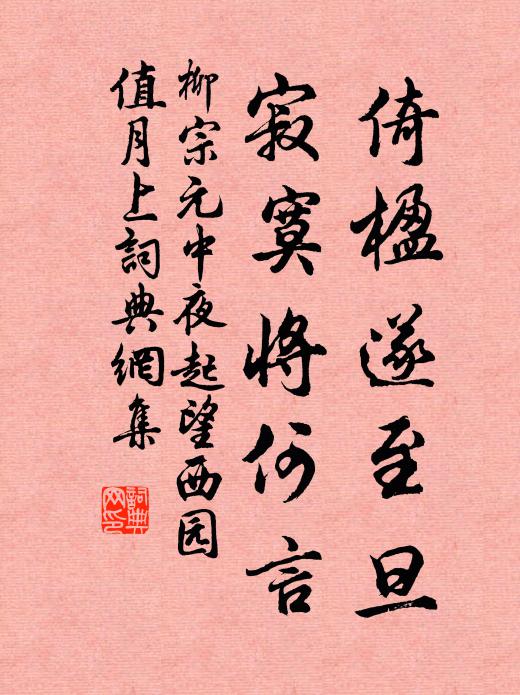 倚楹遂至旦
寂寞將何言
柳宗元中夜起望西园
值月上詞典網集
詞典网印